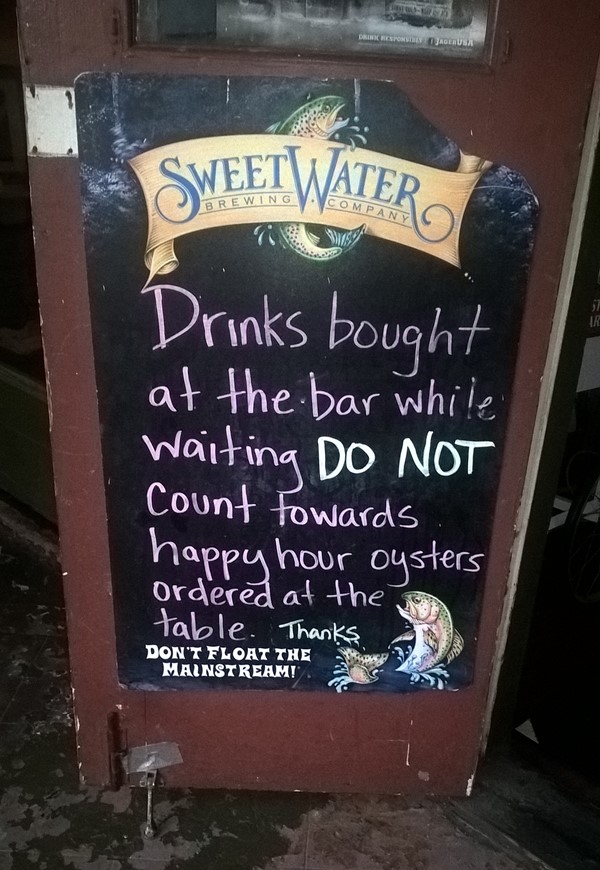 DRINK RESPONSIBLY JAGERUSA
SWEETWATER
BREWING COMPANY
Drinks bought
at the bar while
waiting DO NOT
Count towards
happy hour oysters
ordered at the
table. Thanks
DON'T FLOAT THE
MAINSTREAM!